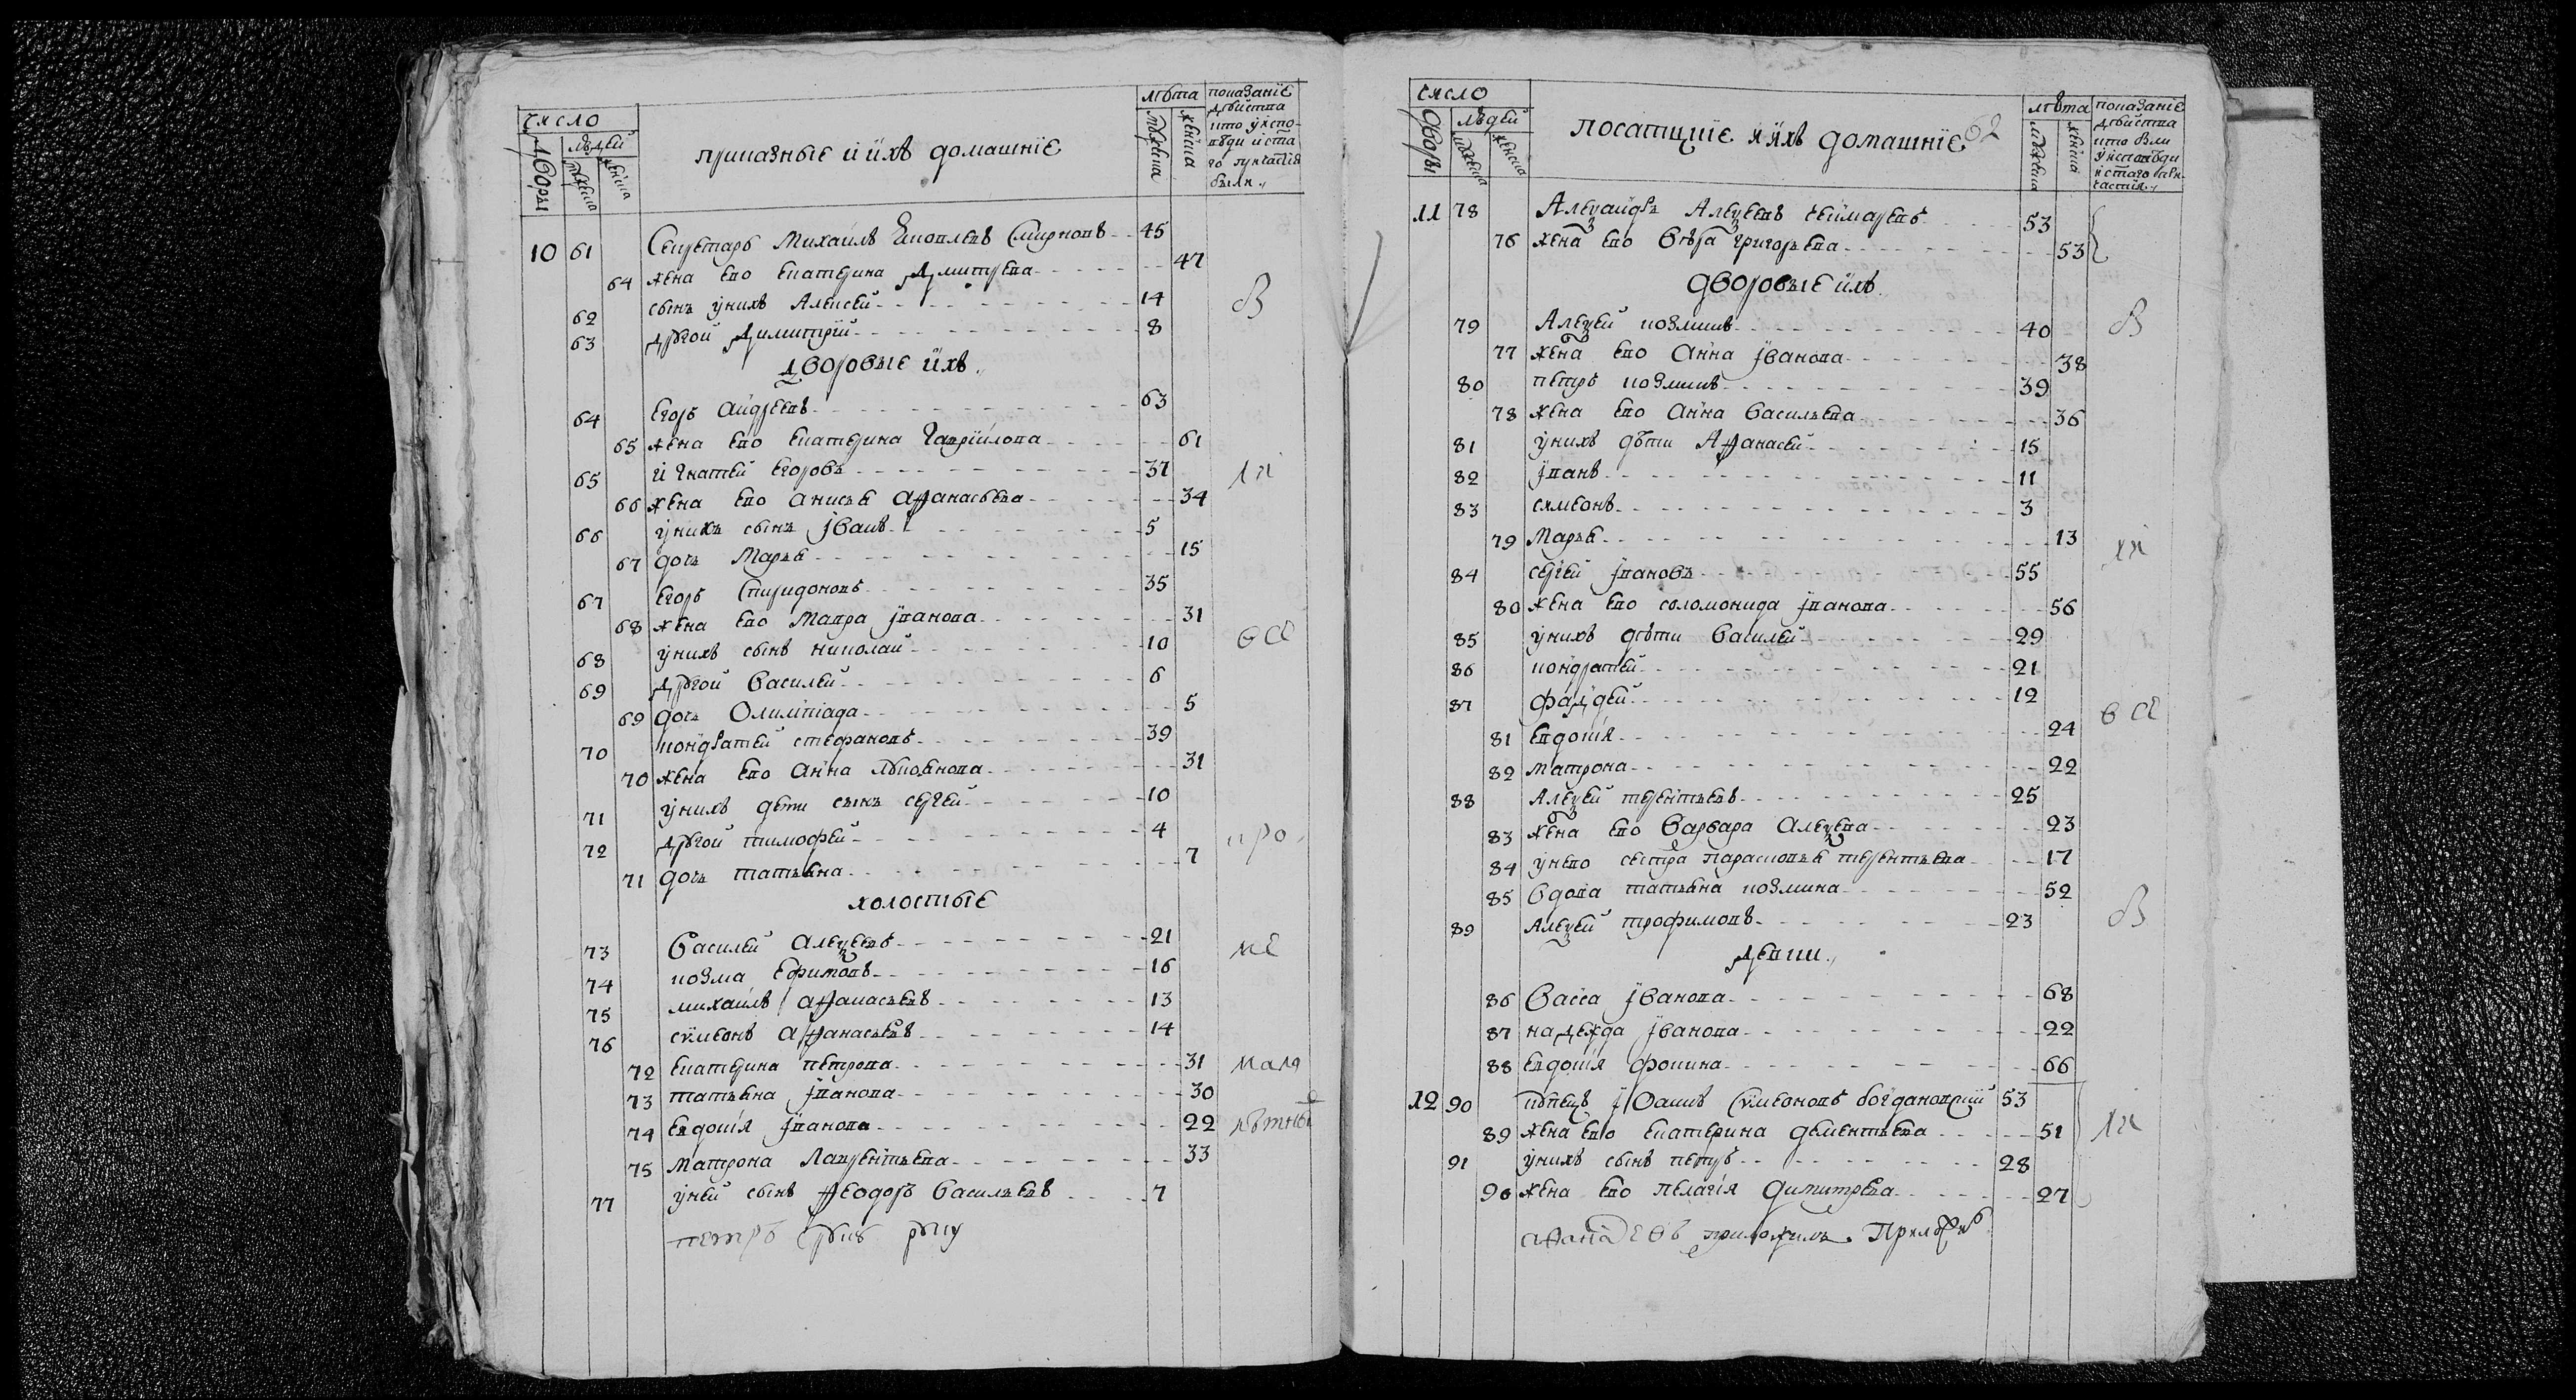 число
дворы
людей
мужеска
женска
приказные и ихъ домашніе
лѣта
мужеска
женска
показаніе
действа
кто у испо-
веди и ста
го причастія
были
10 61 Секретарь Михаилъ Яковлевъ Смирновъ 45
64 жена ево Екатерина Дмитрева 47
62 сынъ у нихъ Алексей 14
63 другой Димитрий 8
дворовые ихъ
64 Егоръ Андреевъ 63
65 жена ево Екатерина Гавриилова 61
65 Игнатей Егоровъ 37
66 жена ево Анисья Афанасьева 34
66 у нихъ сынъ Іванъ 5
67 дочь Марья 15
67 Егоръ Спиридоновъ 35
68 жена ево Мавра Іванова 31
68 у нихъ сынъ Николай 10
69 другой Василей 6
69 дочь Олимпіада 5
70 Кондратей Стефановъ 39
70 жена ево Анна Лукоянова 31
71 у нихъ дети сынъ Сергей 10
72 другой Тимофей 4
71 дочь Татьяна 7
холостые
73 Василей Алексеевъ 21
74 Козма Ефимовъ 16
75 Михаилъ Афанасьевъ 13
76 Сѵмеонъ Афанасьевъ 14
72 Екатерина Петрова 31
73 Татьяна Іванова 30
74 Евдокія Іванова 22
75 Матрона Лаврентьева 33
77 у ней сынъ Ѳеодоръ Васильевъ 7
В
ли
все
кро
ме
мало
летные
петръ руку
62
число
дворы
людей
мужеска
женска
посатцкіе и ихъ домашніе
лѣта
мужеска
женска
показаніе
действа
кто были
у исповѣди
и стаго при-
частія
11 78 Алексайдръ Алексеевъ Чеймаревъ 53
76 жена ево Вѣра Григорьева 53
дворовые ихъ
79 Алексей Козминъ 40
77 жена ево Анна Іванова 38
80 Петръ Козминъ 39
78 жена ево Анна Васильева 36
81 у нихъ дѣти Афанасей 15
82 Іванъ 11
83 Симеонъ 3
79 Марья 13
84 Сергей Івановъ 55
80 жена ево Соломонида Іванова 56
85 у нихъ дѣти Василей 29
86 Кондратей 21
87 Фаддей 12
81 Евдокія 24
82 Матрона 22
88 Алексей Терентьевъ 25
83 жена ево Варвара Алексеева 23
84 у нево сестра Парасковья Терентьева 17
85 вдова Татьяна Козмина 52
89 Алексей Трофимовъ 23
девки
86 Васса Іванова 68
87 Надежда Іванова 22
88 Евдокія Фокина 66
12 90 купецъ Іоаннъ Сѵмеоновъ Богдановский 53
89 жена ево Екатерина Дементьева 51
91 у нихъ сынъ Петръ 28
90 жена ево Пелагія Димитрева 27
В
ли
все
В
ли
приложилъ